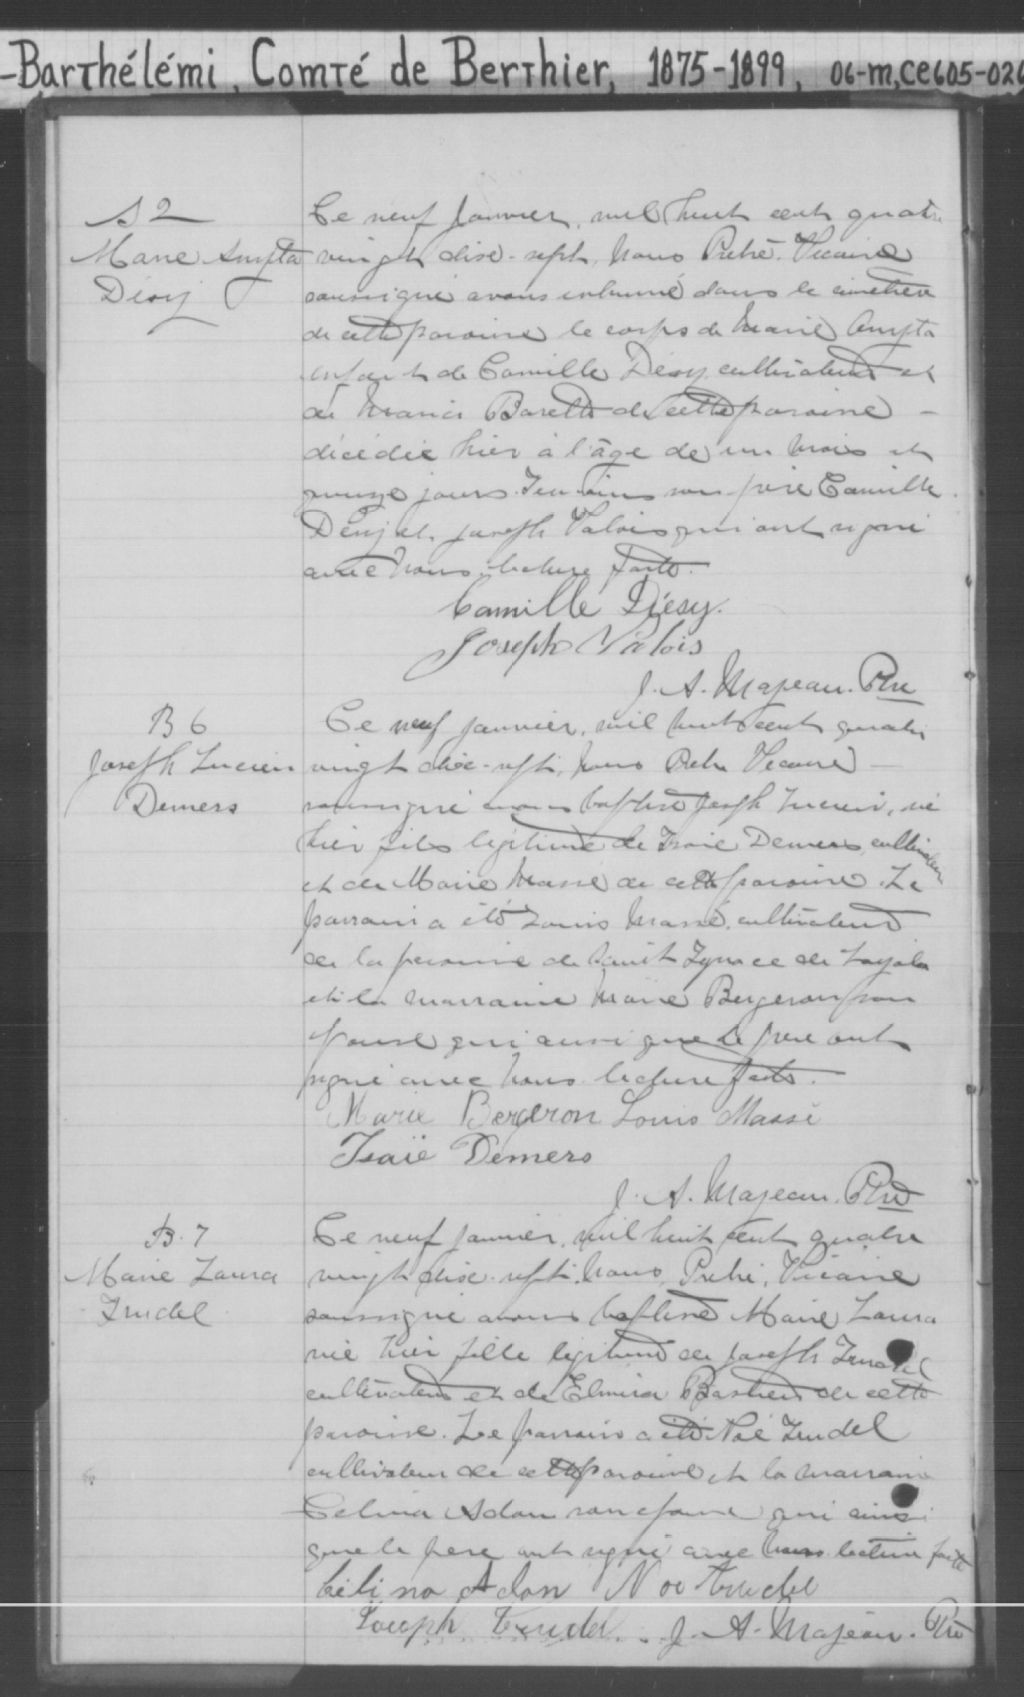 -Barthélémi, Comté de Berthier, 1875-1899, 06-m,CE605-026
S 2
Marie
Désy
Ce neuf Janvier, mil huit cent quatre
vingt dixe-sept, nous Prêtre Vicaire
soussigné avons inhumé dans le cimetière
de cette paroisse le corps de Marie
enfant de Camille Désy cultivateur et
de de cette paroisse
décédée hier à l'âge de un mois et
quinze jours. Témoins son père Camille
Désy et Joseph Valois qui ont signé
avec nous lecture faite.
Camille Désy.
Joseph Valois
J. A. Majeau. Ptre
B 6
Joseph Lucien
Demers
Ce neuf janvier, mil huit cent quatre
vingt dixe-sept, nous Prêtre Vicaire
soussigné avons baptisé Joseph Lucien, né
hier fils légitime de Isaïe Demers cultivateur
et de Marie Massé de cette paroisse. Le
parrain a été Louis Massé cultivateur
de la paroisse de Saint Ignace de Loyola
et la marraine Marie Bergeron son
épouse qui ainsi que le père ont
signé avec nous lecture faite.
Marie Bergeron Louis Massé
Isaïe Demers
J. A. Majeau. Ptre
B. 7
Marie Laura
Trudel
Ce neuf janvier, mil huit cent quatre
vingt dixe-sept, nous, Prêtre, Vicaire
soussigné avons baptisé Marie Laura
née hier fille légitime de Joseph Trudel
cultivateur et de Elmira de cette
paroisse. Le parrain a été Noé Trudel
cultivateur de cette paroisse et la marraine
Celina Adam qui ainsi
que le père ont signé avec nous lecture faite
Célina Adan Noé Trudel
Joseph Trudel J. A. Majeau. Ptre